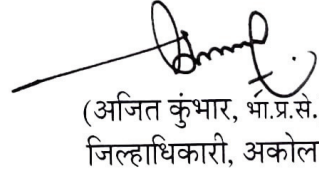 (अजित कुंभार, भा.प्र.से.
जिल्हाधिकारी, अकोल